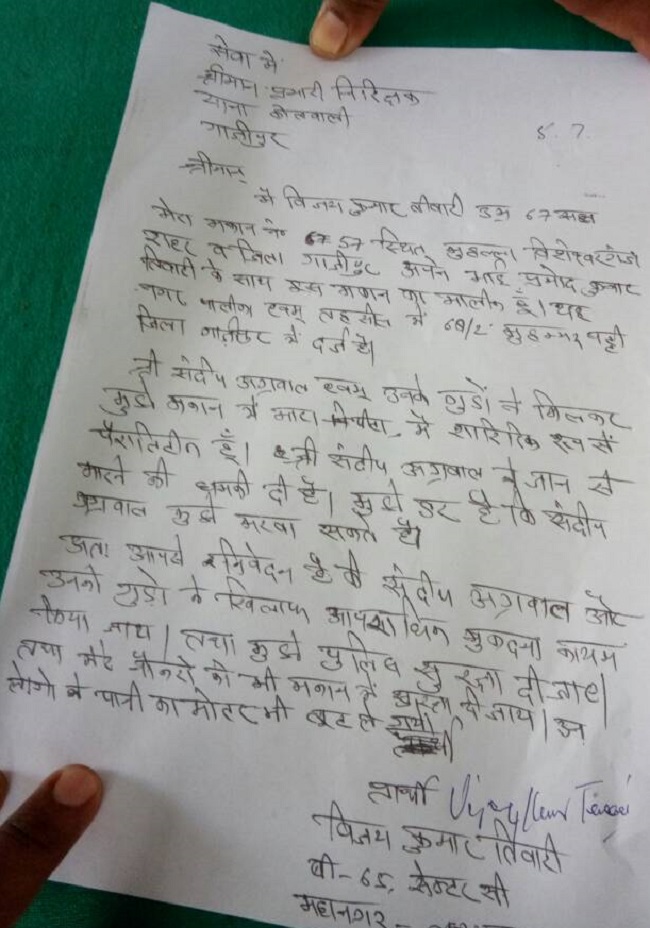 सेवा में
श्रीमान प्रभारी निरिक्षक
थाना कोतवाली
गाजीपुर
5.7.
श्रीमान्
मैं विजय कुमार तीवारी उम्र 67 साल
मेरा मकान नं० 57 स्थित मुहल्ला विशेश्वरगंज
शहर व जिला गाजीपुर अपने भाई प्रमोद कुमार
तिवारी के साथ इस मकान का मालीक हूँ। यह
नगर पालीका एवम् तहसील में 68/2
जिला गाजीपुर में दर्ज है।
श्री संदीप अग्रवाल एवम् उनके गुंडों ने मिलकर
मुझे मकान में मारा मैं शारिरिक रूप से
हूँ। श्री संदीप अग्रवाल ने जान से
मारने की धमकी दी है। मुझे डर है कि संदीप
अग्रवाल मुझे मरवा सकते है।
अतः आपसे निवेदन है के संदीप अग्रवाल और
उनके गुंडो के खिलाफ आपराधिक मुकदमा कायम
किया जाय। तथा मुझे पुलिस सुरक्षा दी जाए।
तथा मेरे नौकरों को भी मकान में सुरक्षा दी जाय। उन
लोगो ने पानी का मोटर भी लूट ले गये।
प्रार्थी
विजय कुमार तिवारी
बी-65, सेक्टर सी
महानगर -